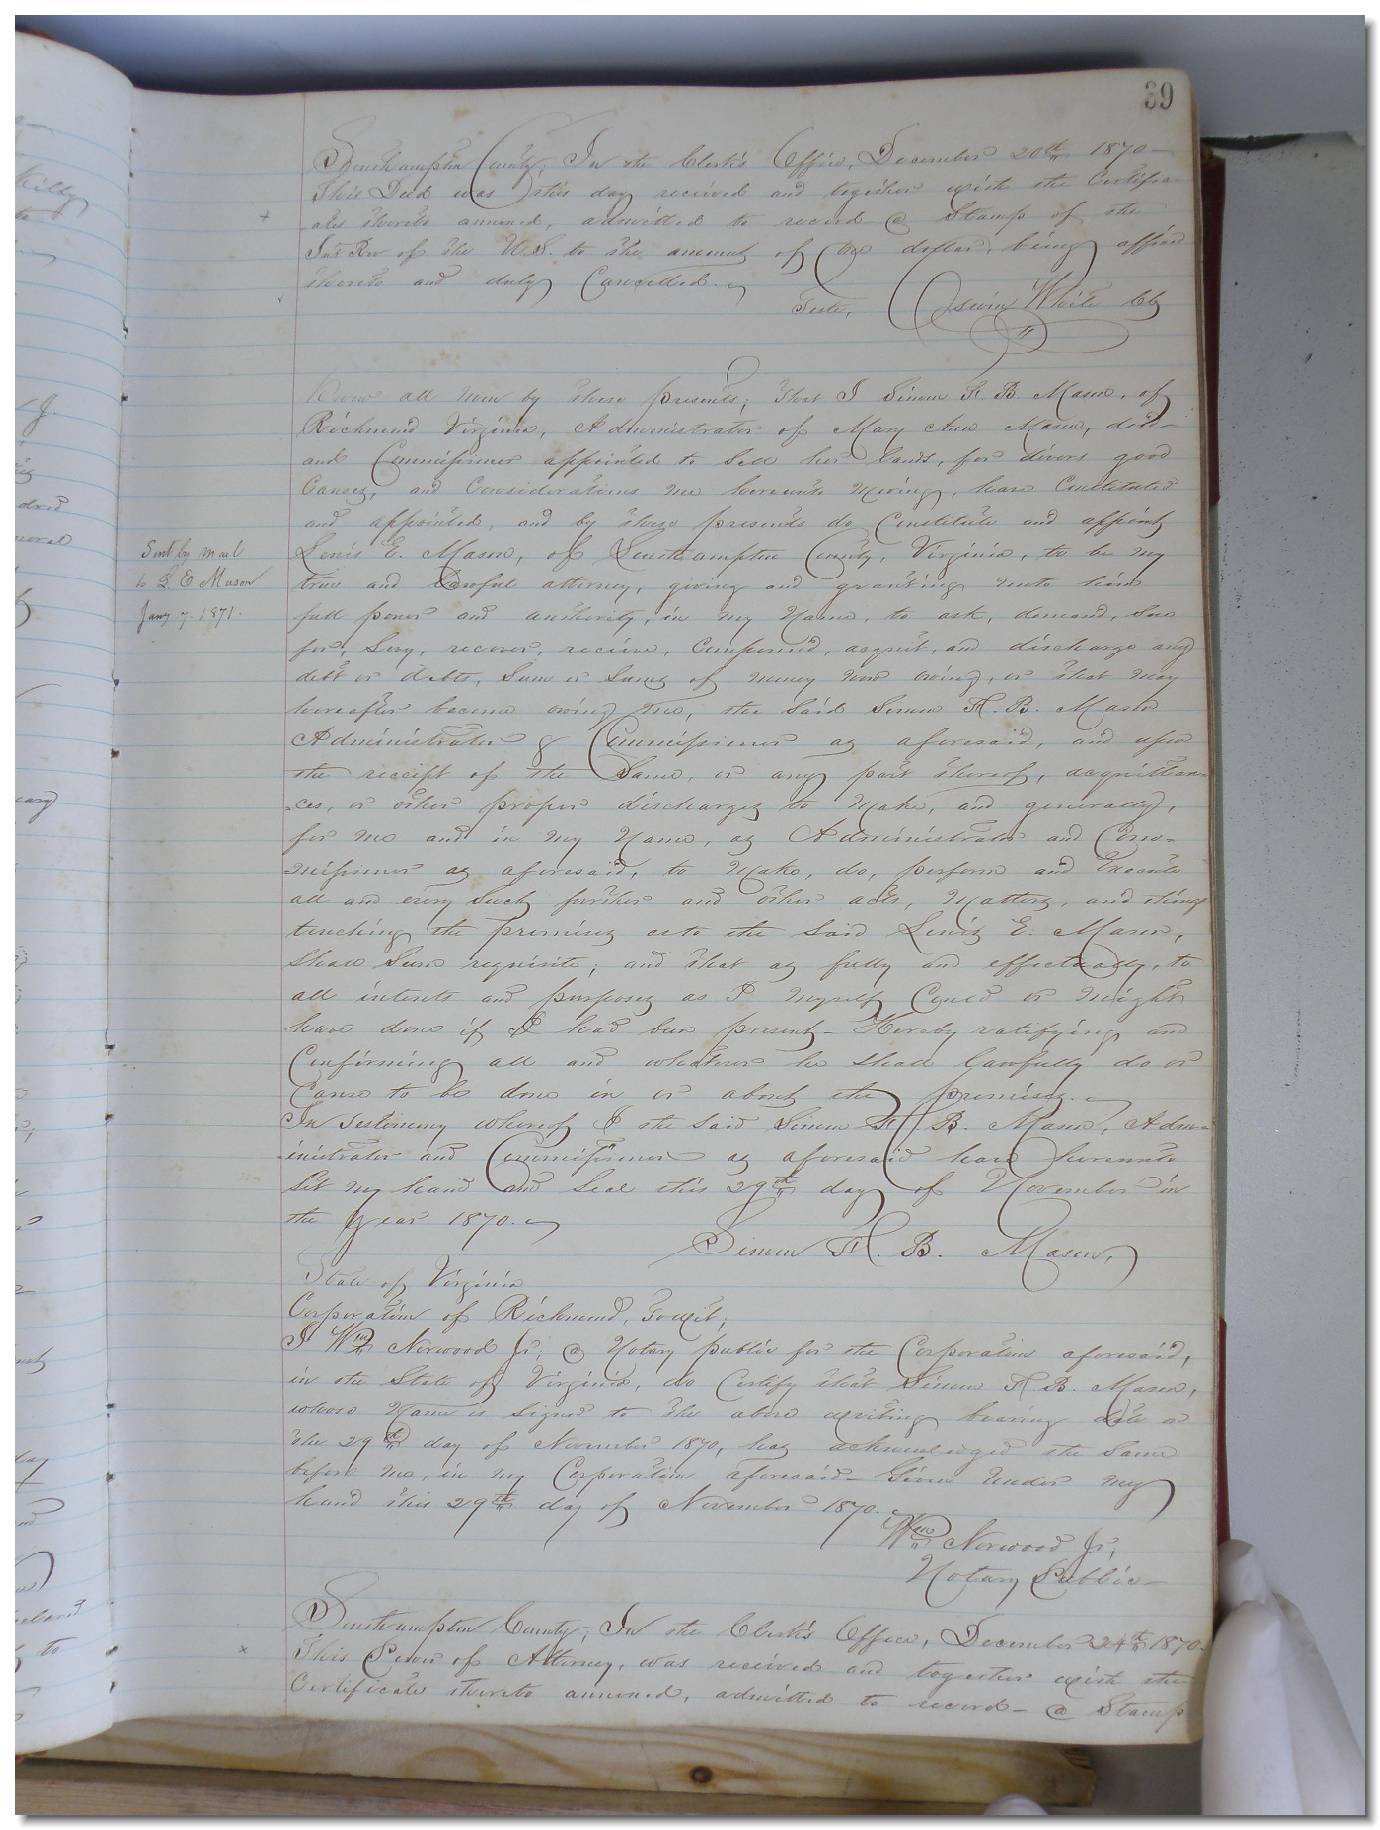 39
Southampton County; In the Clerk's Office, December 20th 1870—
This Deed was this day received and together with the Certific-
ates thereto annexed, admitted to record @ Stamp of the
Int Rev of the U.S. to the amount of One dollar, being affixed
thereto and duly Cancelled.
Teste, White Clk
Know all men by these presents, that I Simon H. B. Mason, of
Richmond Virginia, Administrator of Mary Ann Mason, decd—
and Commissioner appointed to Sell her lands, for divers good
Causes, and Considerations me hereunto moving, have Constituted
and appointed, and by these presents do Constitute and appoint
Lewis E. Mason, of Southampton County, Virginia, to be my
true and lawful attorney, giving and granting unto him
full power and authority, in my Name, to ask, demand, Sue
for, Levy, recover, receive, Compound, acquit, and discharge any
debt or debts, Sum or Sums of money now owing, or that may
hereafter become owing me, the Said Simon H. B. Mason
Administrator & Commissioner as aforesaid, and upon
the receipt of the Same, or any part thereof, acquittan-
-ces, or other proper discharges to Make, and generally,
for me and in my Name, as Administrator and Com-
-missioner as aforesaid, to Make, do, perform and Execute
all and every Such further and other acts, Matters, and things
touching the premises as to the Said Lewis E. Mason,
Shall Seem requisite; and that as fully and effectually, to
all intents and purposes as I Myself Could or Might
have done if I had been present— Hereby ratifying and
Confirming all and whatever he Shall lawfully do or
Cause to be done in or about the premises.
In testimony whereof I the Said Simon H. B. Mason, Adm-
inistrator and Commissioner as aforesaid have hereunto
Set my hand and Seal this 29th day of November in
the year 1870.
Simon H. B. Mason,
Sent by mail
to L. E Mason
Jany 7. 1871.
State of Virginia
Corporation of Richmond, towit;
I Wm Norwood Jr; a Notary public for the Corporation aforesaid,
in the State of Virginia, do Certify that Simon H B. Mason,
whose Name is Signed to the above writing bearing date on
the 29th day of November 1870, has acknowledged the Same
before me, in my Corporation aforesaid— Given under my
hand this 29th day of November 1870.
Wm Norwood Jr,
Notary Public—
Southampton County; In the Clerk's Office, December 24th 1870.
This Power of Attorney, was received and together with the
Certificate thereto annexed, admitted to record— @ Stamp